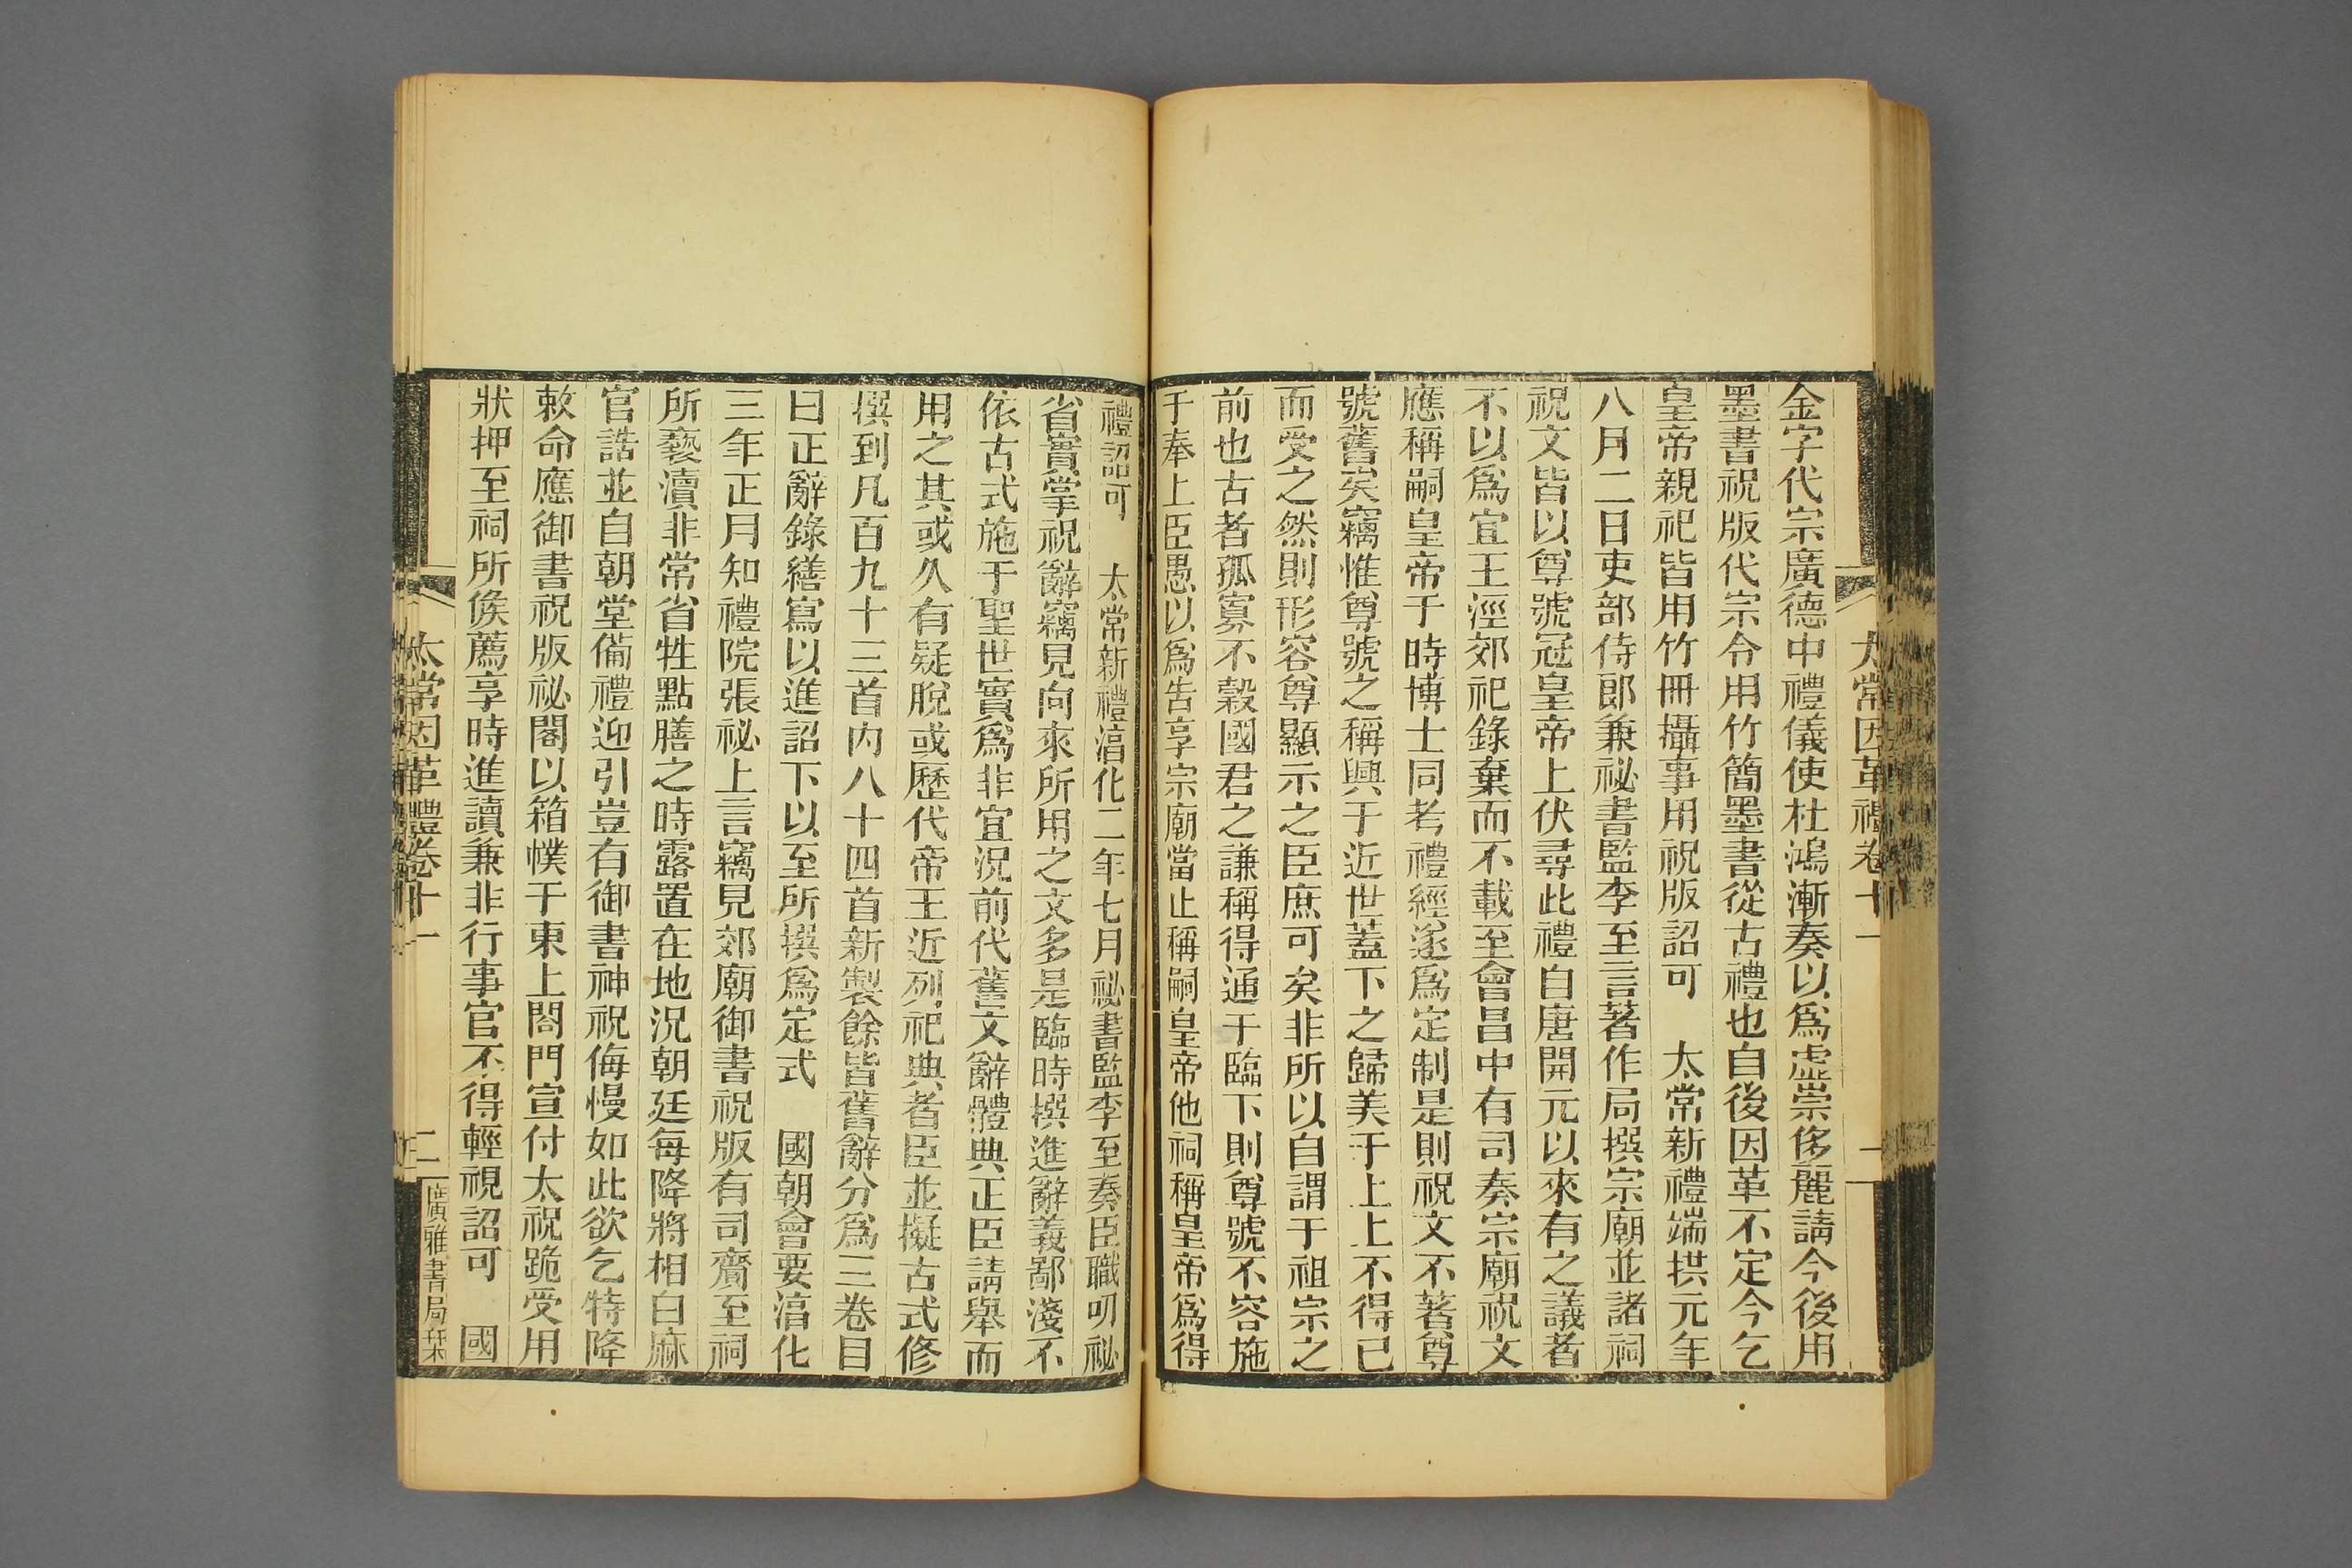 太常因革禮卷十一
金字代宗廣德中禮儀使杜鴻漸奏以爲虛崇侈麗請今後用
墨書祝版代宗令用竹簡墨書從古禮也自後因革不定今乞
皇帝親祀皆用竹冊攝事用祝版詔可　太常新禮端拱元年
八月二日吏部侍郎兼祕書監李至言著作局撰宗廟並諸祠
祝文皆以尊號冠皇帝上伏尋此禮自唐開元以來有之議者
不以爲宜王涇郊祀錄棄而不載至會昌中有司奏宗廟祝文
應稱嗣皇帝于時博士同考禮經遂爲定制是則祝文不著尊
號舊矣竊惟尊號之稱興于近世蓋下之歸美于上上不得已
而受之然則形容尊顯示之臣庶可矣非所以自謂于祖宗之
前也古者孤寡不穀國君之謙稱得通于臨下則尊號不容施
于奉上臣愚以爲告享宗廟當止稱嗣皇帝他祠稱皇帝爲得
禮詔可　太常新禮淳化二年七月祕書監李至奏臣職叨祕
省實掌祝辭竊見向來所用之文多是臨時撰進辭義鄙淺不
依古式施于聖世實爲非宜況前代舊文辭體典正臣請舉而
用之其或久有疑脫或歷代帝王近列祀典者臣並擬古式修
撰到凡百九十三首內八十四首新製餘皆舊辭分爲三卷目
曰正辭錄繕寫以進詔下以至所撰爲定式　國朝會要淳化
三年正月知禮院張祕上言竊見郊廟御書祝版有司齎至祠
所褻瀆非常省牲點膳之時露置在地況朝廷每降將相白麻
官誥並自朝堂備禮迎引豈有御書神祝侮慢如此欲乞特降
敕命應御書祝版祕閣以箱幞于東上閤門宣付太祝跪受用
狀押至祠所候薦享時進讀兼非行事官不得輕視詔可　國
太常因革禮卷十一
二
廣雅書局栞